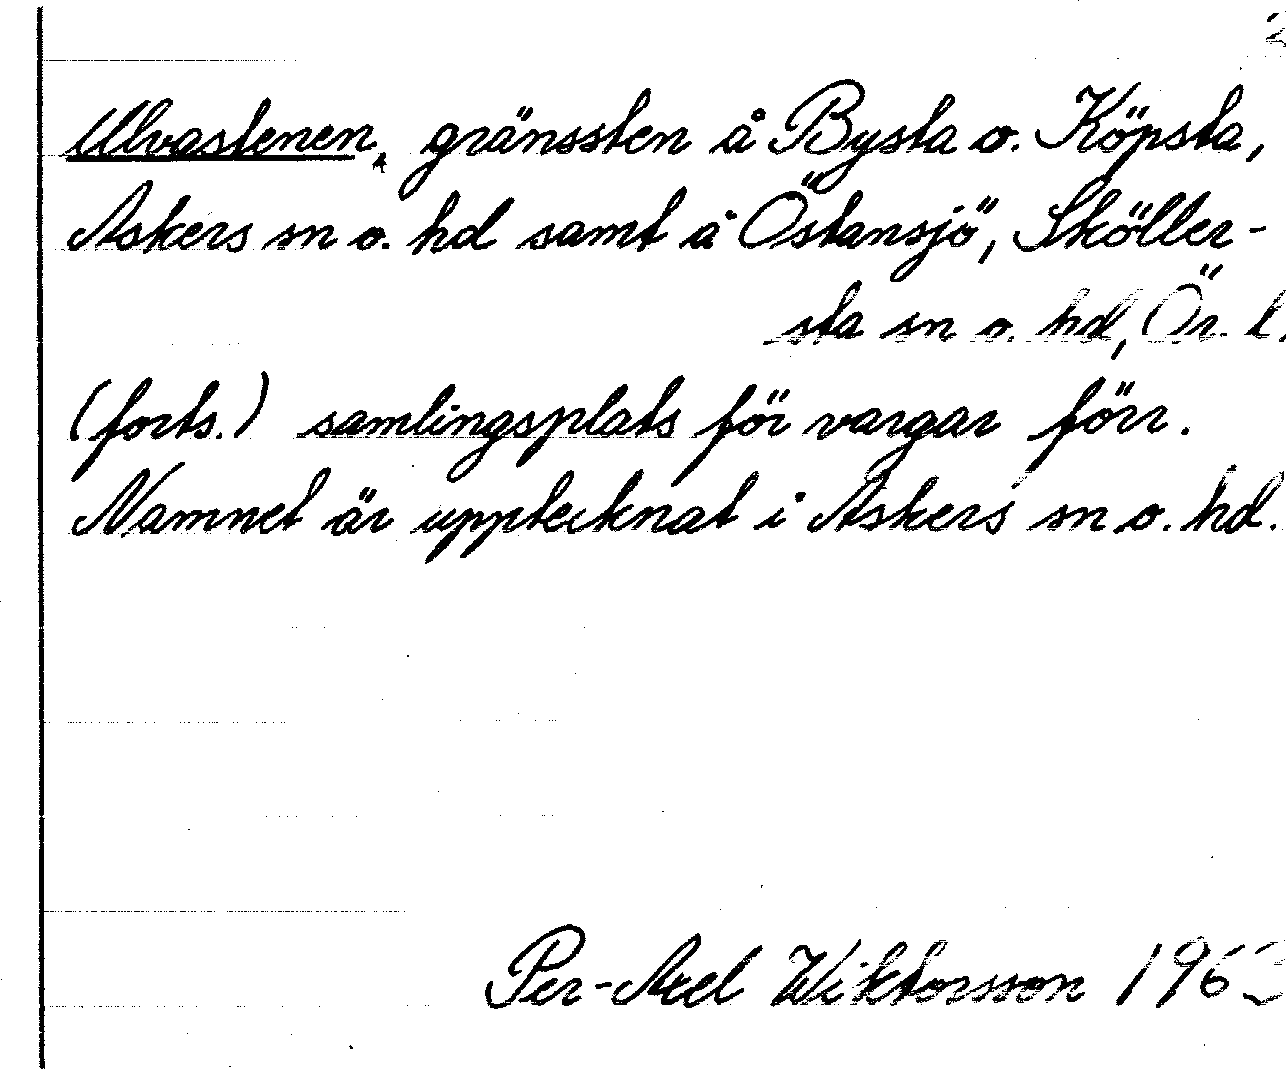 2
Ulvastenen, gränssten å Bysta o. Köpsta,
Askers sn o. hd samt å Östansjö, Sköller-
sta sn o. hd, Ör. l.
(forts.) samlingsplats för vargar förr.
Namnet är upptecknat i Askers sn o. hd.
Per-Axel Wiktorsson 1963